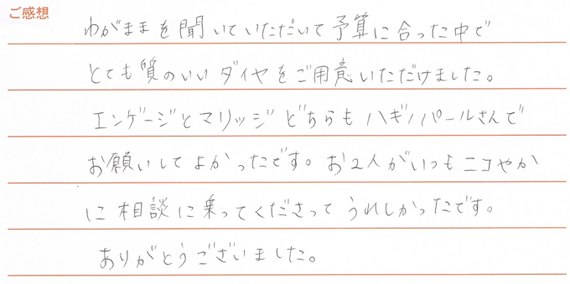 ご感想
わがままを聞いていただいて予算に合った中で
とても質のいいダイヤをご用意いただけました。
エンゲージとマリッジどちらもハギノパールさんで
お願いしてよかったです。お2人がいつもニコやか
に相談に乗ってくださってうれしかったです。
ありがとうございました。